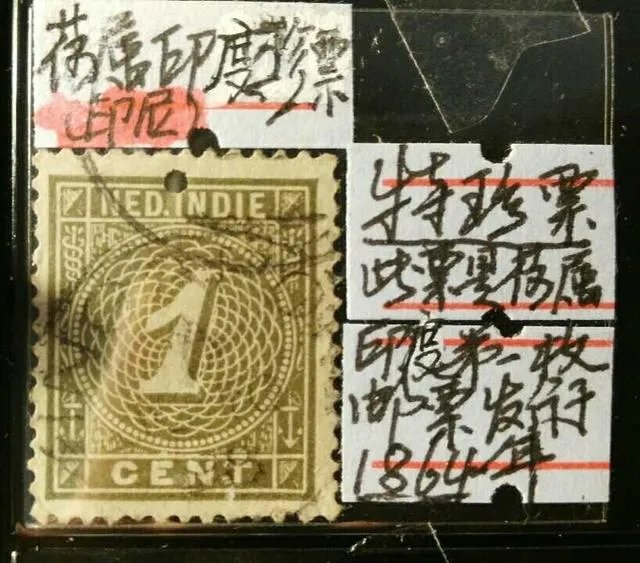 荷属印度珍票
(印尼)
NED.INDIE
1
CENT
特珍票
此票是荷属
印度第一枚
邮票发行
1864年